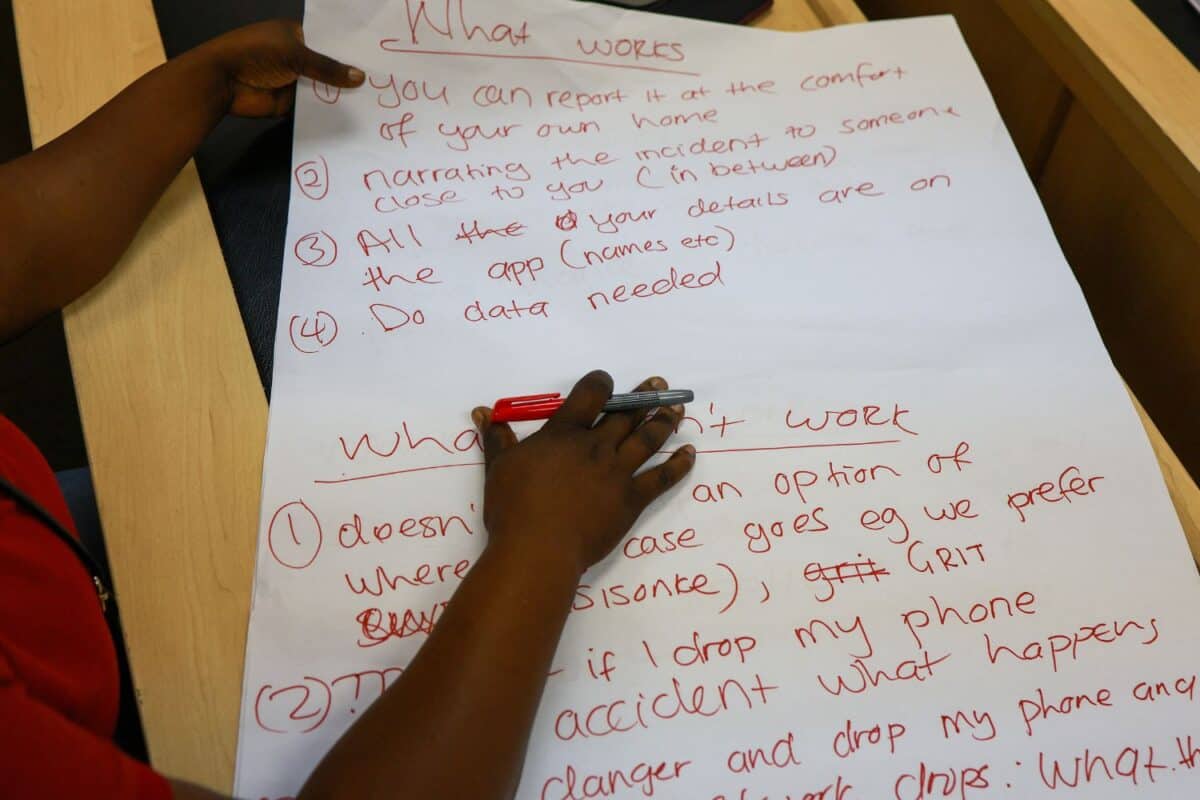 What WORKS
① you can report it at the comfort
of your own home
② narrating the incident to someone
close to you (in between)
③ All the your details are on
the app (names etc)
(4) Do data needed
Wha n't WORK
① doesn' an option of
where case goes eg we prefer
sisonke), grit GRIT
(2) if I drop my phone
accident what happens
danger and drop my phone and
drops: What